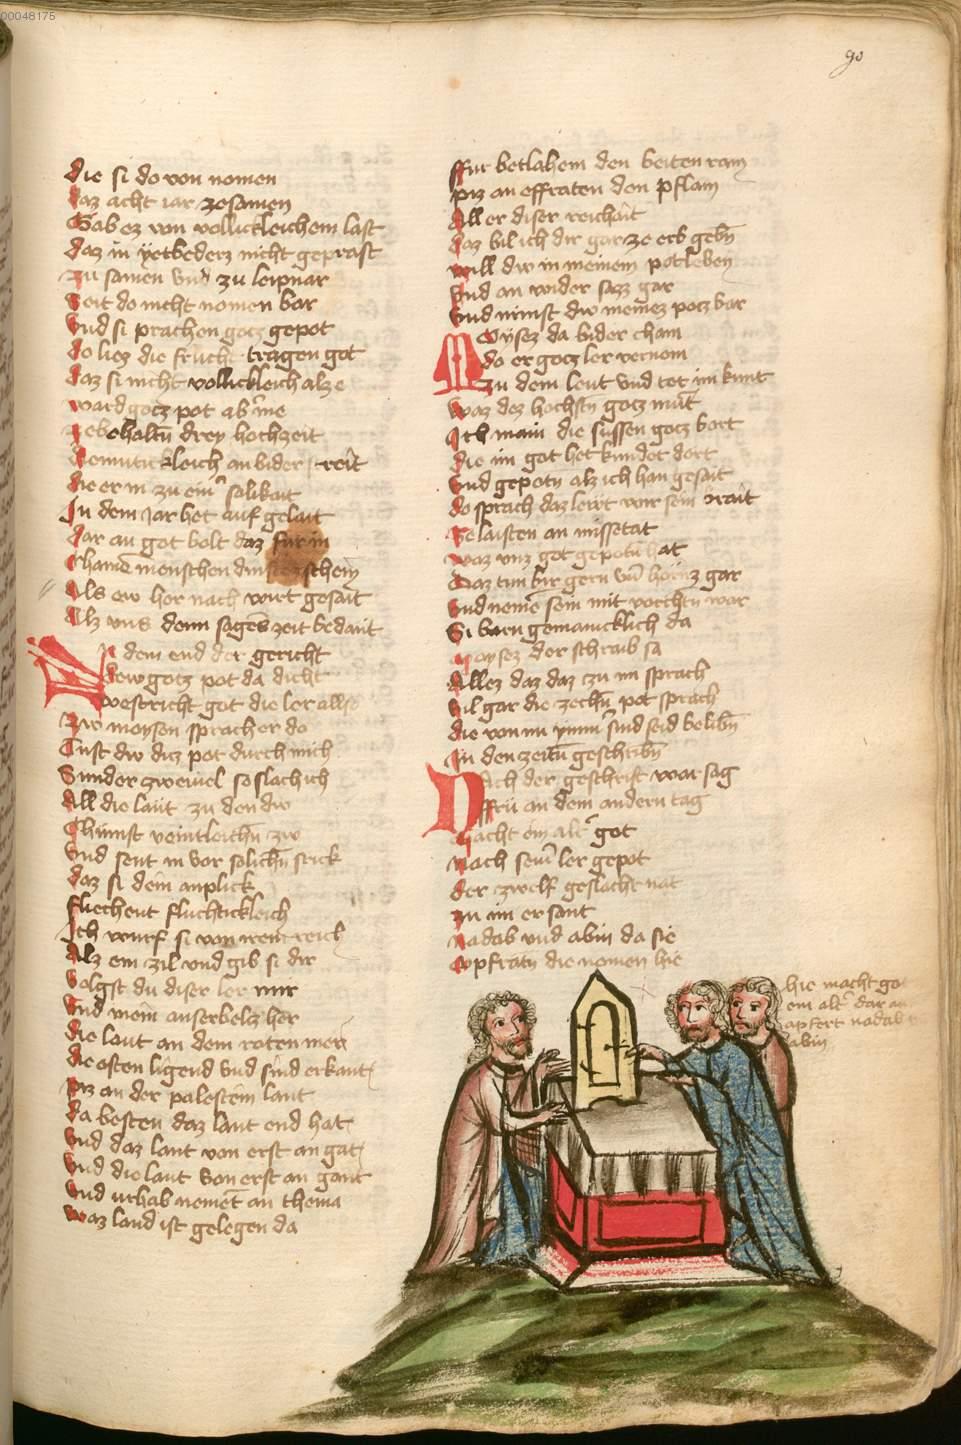 00048175
90
die si do von nomen
daz acht iar zesamen
Gab ez von vollickleichem last
daz in yetweders nicht geprast
zu samen vnd zu leipnar
Seit do nicht nomen bar
Vnd si prachen gotz gepot
do liez die frucht tragen got
daz si nicht vollickleich alz e
ward gotz pot ab
zebehaltn drey hochzeit
diemutickleich an bider streit
die er in zu ein
In dem iar het auf gelait
dar an got bolt daz für in
chäme menschen schein
Als ew hernach wirt gesait
Alz vns denn sages zeit bedaut
An dem end der gericht
dew gotz pot da dicht
vestricht got die ler also
Zw moysen sprach er do
Tust dw ditz pot durch mich
Sunder zweiuel so slach ich
All die läut zu den dw
Chumst veintleichn zw
Vnd sent in vor solichn schrick
daz si dem anplick
fliechent fluchtickleich
Ich wurf si von irem reich
Alz ein zil vnd gib si dir
Volgst du diser ler mir
Vnd mein auserbeltz her
die laut an dem roten mer
die osten ligend vnd sind erkant
piz an der palestein lant
da besten daz lant end hat
Vnd daz lant von erst an gat
Vnd die laut von erst an gant
Vnd vrhab nement an thema
waz land ist gelegen da
ffur betlahem den beiten ram
piz an effraten den pflam
All er diser reichait
daz bil ich dir gar ze erb gebn
will dw in meinem pot leben
Vnd an wider sazz gar
Vnd nimst dw meinez potz bar
Moysez da bider cham
do er gotz ler vernom
zu dem leut vnd tet im kunt
waz dez hochstn gotz mut
Ich main die sussen gotz bort
die im got het kundet dort
Vnd gepotn alz ich han gesait
do sprach daz leut wir sein
Ze laisten an missetat
waz vnz got gepotn hat
Daz tun bir gern vnd gar
Vnd neme sein mit vorchtn war
Si barn gemainicklich da
moysez der schraib sa
Allez daz daz zu im sprach
Vil gar die zechn pot sprach
die von im sind seid belibn
In den zeitn geschribn
Nach der geschrift war sag
ffrü an dem andern tag
macht ein altr got
Nach seinr ler gepot
der zwelf geslächt nat
zu im er sant
Nadab vnd abiu da sie
opfratn die nomen hie
hie macht got
ein altr dar an
opfert nadab v
abiu